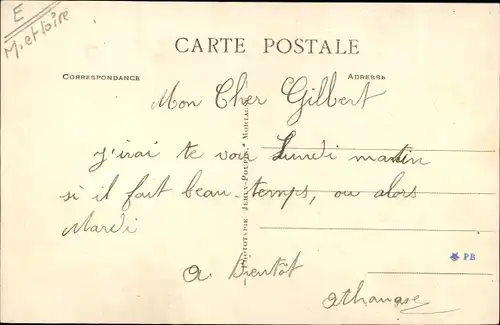 E
M. et Loire
CARTE POSTALE
CORRESPONDANCE
ADRESSE
Mon Cher Gilbert
J'irai te voir Lundi matin
si il fait beau-temps, ou alors
Mardi
a Bientôt
athanase
PB
PHOTOTYPIE